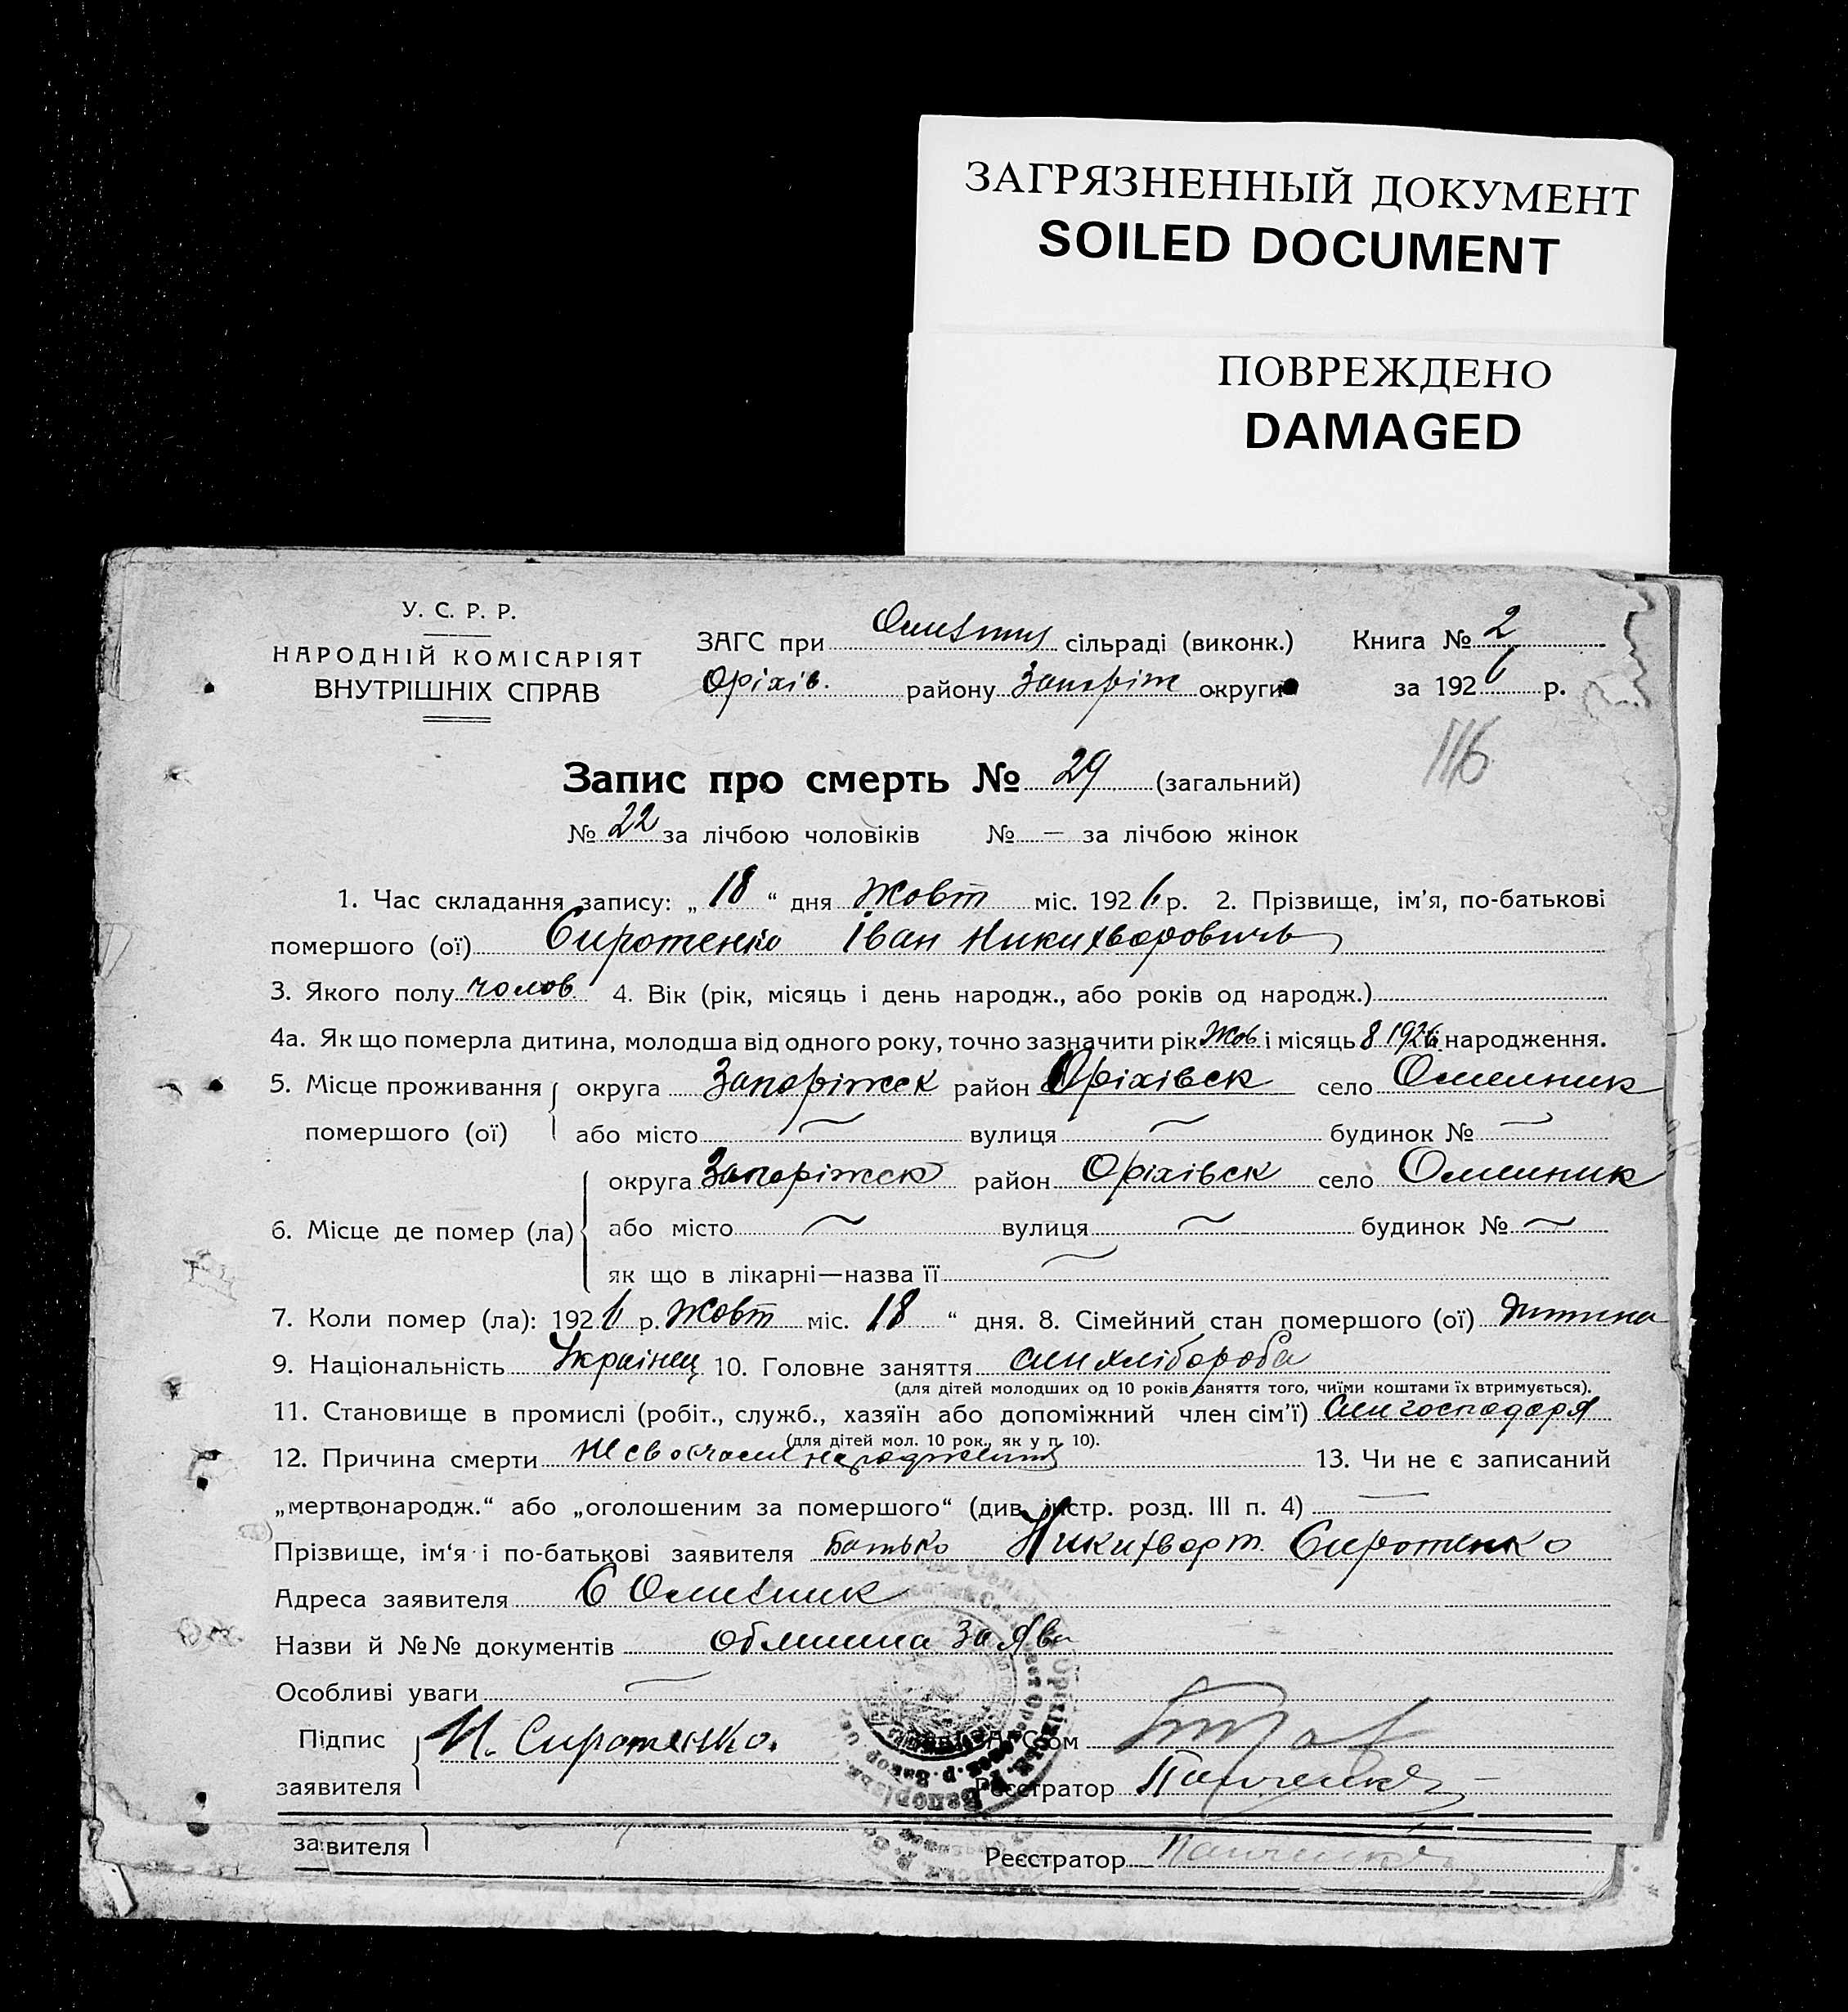 ЗАГРЯЗНЕННЫЙ ДОКУМЕНТ
SOILED DOCUMENT
ПОВРЕЖДЕНО
DAMAGED
У. С. Р. Р.
НАРОДНІЙ КОМІСАРІЯТ
ВНУТРІШНІХ СПРАВ
ЗАГС при сільраді (виконк.) Книга № 2
Оріхів. району Запоріж округи за 1926 р.
116
Запис про смерть № 29 (загальний)
№ 22 за лічбою чоловіків № — за лічбою жінок
1. Час складання запису: „ 18 “ дня Жовт міс. 1926 р. 2. Прізвище, ім'я, по-батькові
помершого (ої) Сиротенко Іван Никихворовичь
3. Якого полу чолов 4. Вік (рік, місяць і день народж., або років од народж.)
4а. Як що померла дитина, молодша від одного року, точно зазначити рік Жов і місяць 8 1926 народження.
5. Місце проживання округа Запоріжск район Оріхівск село Омелник
помершого (ої) або місто ~ вулиця ~ будинок № ~
округа Запоріжск район Оріхівск село Омелник
6. Місце де помер (ла) або місто ~ вулиця ~ будинок № ~
як що в лікарні—назва її ~
7. Коли помер (ла): 1926 р. Жовт міс. 18 “ дня. 8. Сімейний стан помершого (ої) дитина
9. Національність Українец 10. Головне заняття син хлібороба
(для дітей молодших од 10 років заняття того, чиїми коштами їх втримується).
11. Становище в промислі (робіт., служб., хазяїн або допоміжний член сім'ї) син господоря
(для дітей мол. 10 рок., як у п. 10).
12. Причина смерти народження 13. Чи не є записаний
„мертвонародж.“ або „оголошеним за помершого“ (див. інстр. розд. III п. 4) —
Прізвище, ім'я і по-батькові заявителя Батько Никихвор Сиротенко
Адреса заявителя С Омелник
Назви й №№ документів заява
Особливі уваги ~
Підпис И. Сиротенко.
заявителя Реєстратор Панченко
заявителя Реєстратор Панченко